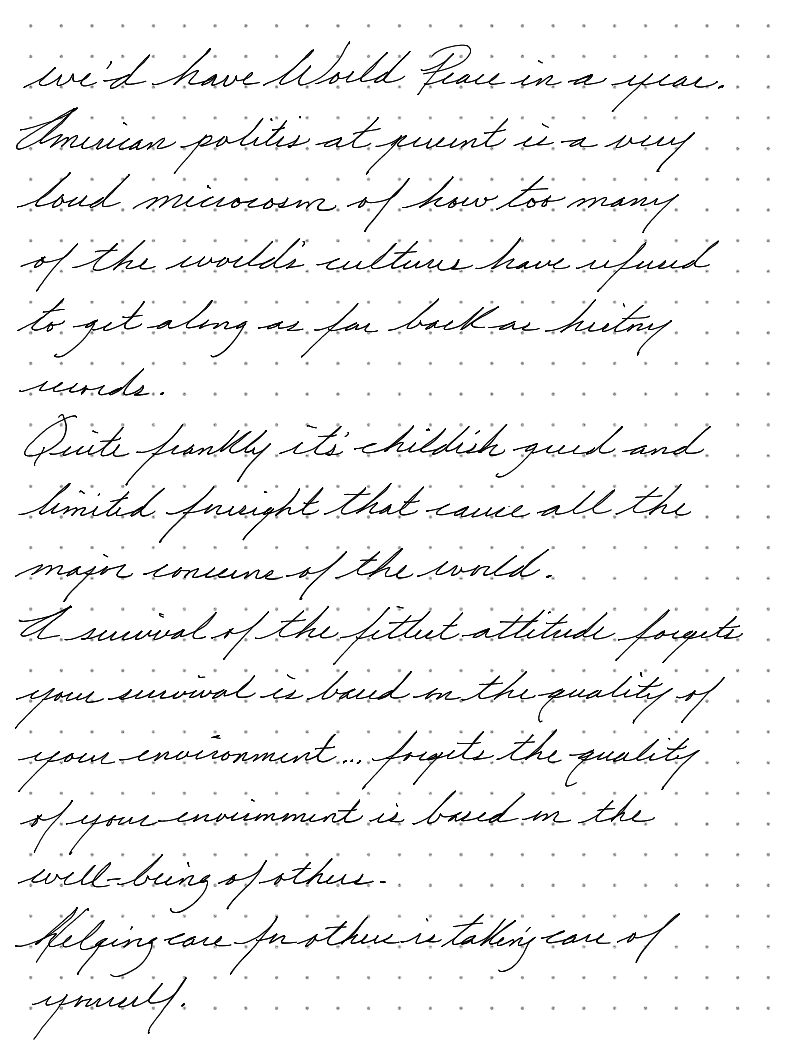 we'd have World Peace in a year.
American politics at present is a very
loud microcosm of how too many
of the world's cultures have refused
to get along as far back as history
records.
Quite frankly it's childish greed and
limited foresight that cause all the
major concerns of the world.
A survival of the fittest attitude forgets
your survival is based on the quality of
your environment... forgets the quality
of your environment is based on the
well-being of others.
Helping care for others is taking care of
yourself.